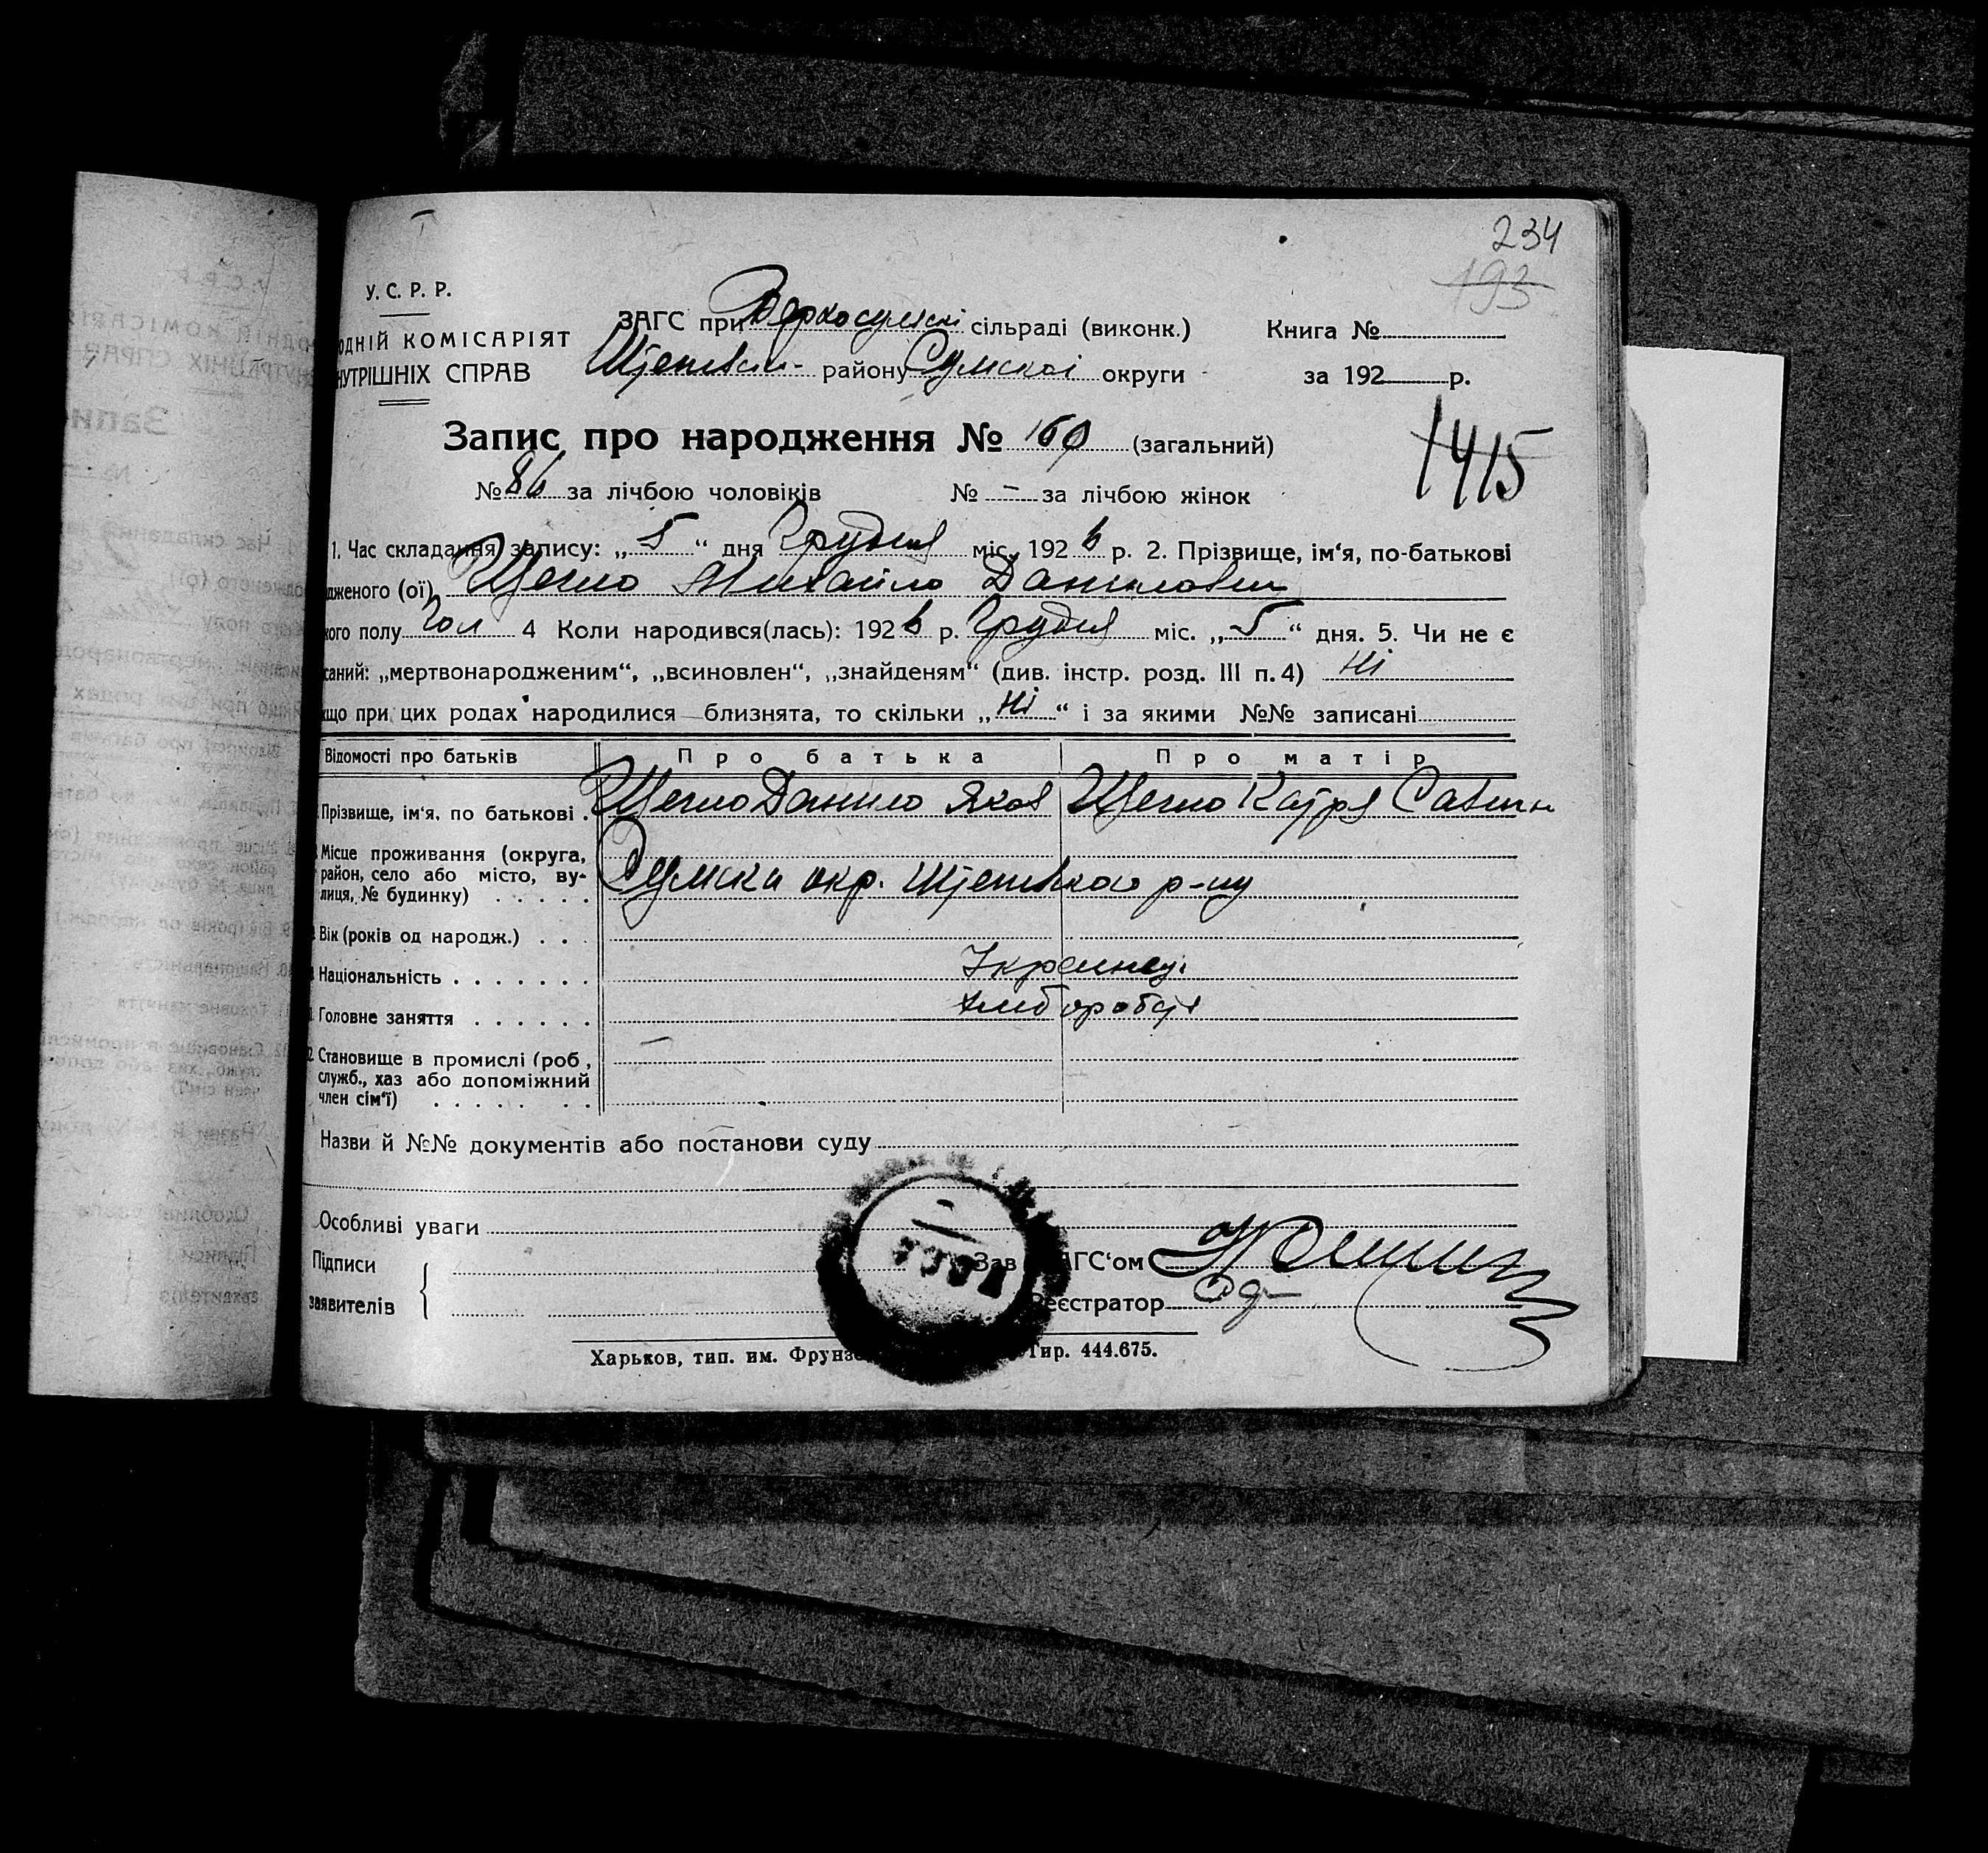 234
193
У. С. Р. Р.
ОДНІЙ КОМІСАРІЯТ
НУТРІШНІХ СПРАВ
ЗАГС при Верхосумскі сільраді (виконк.)
району Сумскої округи
Книга №
за 192 р.
Запис про народження № 160 (загальний)
1415
№ 86 за лічбою чоловіків № – за лічбою жінок
1. Час складання запису: „ 5 “ дня Грудня міс. 192 6 р. 2. Прізвище, ім‘я, по-батькові
дженого (ої) Михайло Данилович
кого полу Чол 4 Коли народився(лась): 192 6 р. Грудня міс. „ 5 “ дня. 5. Чи не є
саний: „мертвонародженим“, „всиновлен“, „знайденям“ (див. інстр. розд. III п. 4) Ні
кщо при цих родах народилися близнята, то скільки „ Ні “ і за якими №№ записані
Відомості про батьків Про батька Про матір
Прізвище, ім‘я, по батькові . Данило Яков Катря
Місце проживання (округа,
район, село або місто, ву-
лиця, № будинку) . . . . .
Сумска окр. р-ну
Вік (років од народж.) . . .
Національність . . . . . . . Українці
Головне заняття . . . . . . хліборобці
2. Становище в промислі (роб.,
служб., хаз або допоміжний
член сім‘ї) . . . . . . .
–
Назви й №№ документів або постанови суду
Особливі уваги
Підписи
заявителів
Зав АГС‘ом
Реєстратор
Харьков, тип. им. Фрунзе Тир. 444.675.